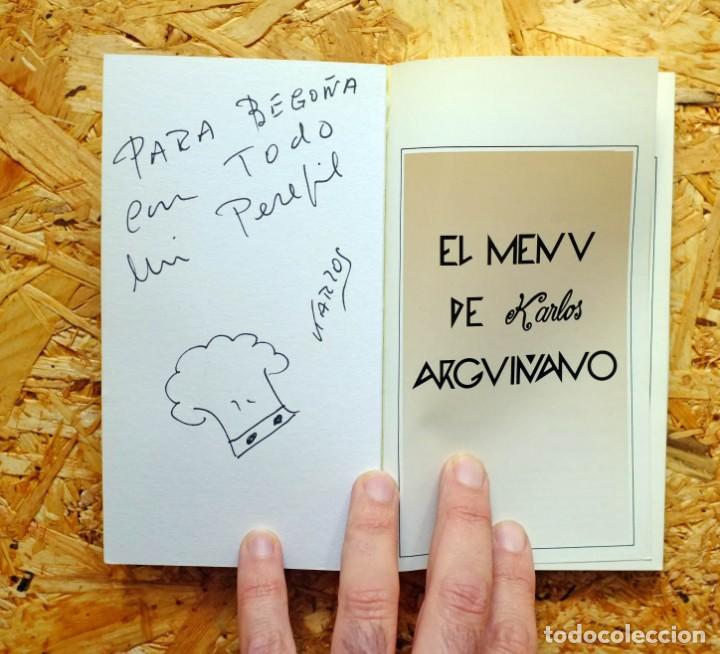 PARA BEGOÑA
con TODO
mi Perejil
KARLOS
EL MENU
DE Karlos
ARGUIÑANO
todocoleccion